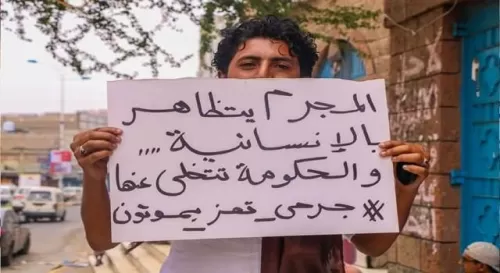 المجرم يتظاهر
بالإنسانية ....
والحكومة تتخلى عنها
#جرحى_تعز_يموتون